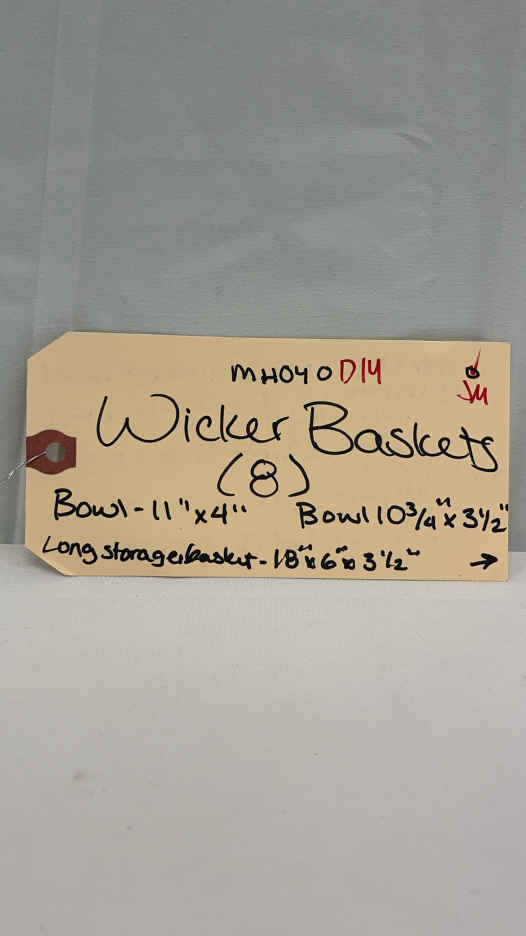 MH040 D14
JM
Wicker Baskets
(8)
Bowl - 11" x 4" Bowl 10 3/4" x 3 1/2"
Long storage basket - 18" x 6" x 3 1/2" →